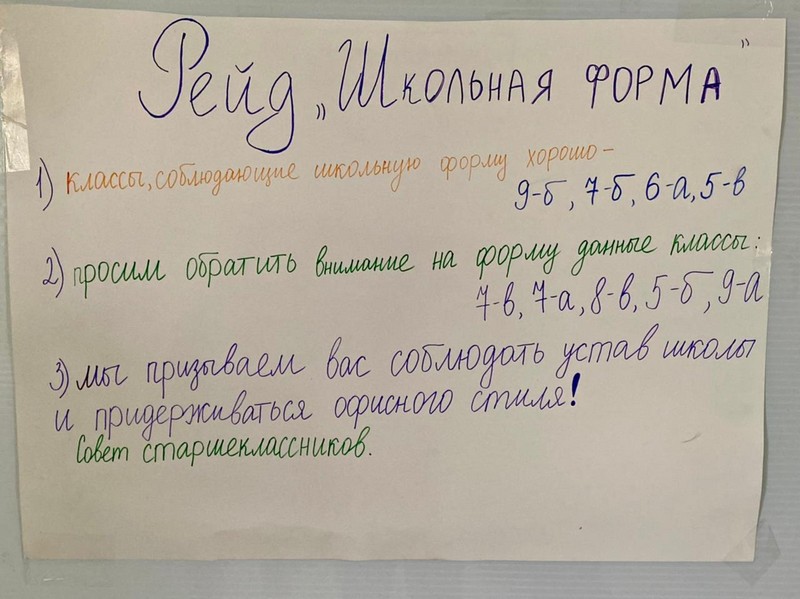 Рейд „Школьная форма"
1) классы, соблюдающие школьную форму хорошо –
9-б, 7-б, 6-а, 5-в
2) просим обратить внимание на форму данные классы:
7-в, 7-а, 8-в, 5-б, 9-а
3) мы призываем вас соблюдать устав школы
и придерживаться офисного стиля!
Совет старшеклассников.